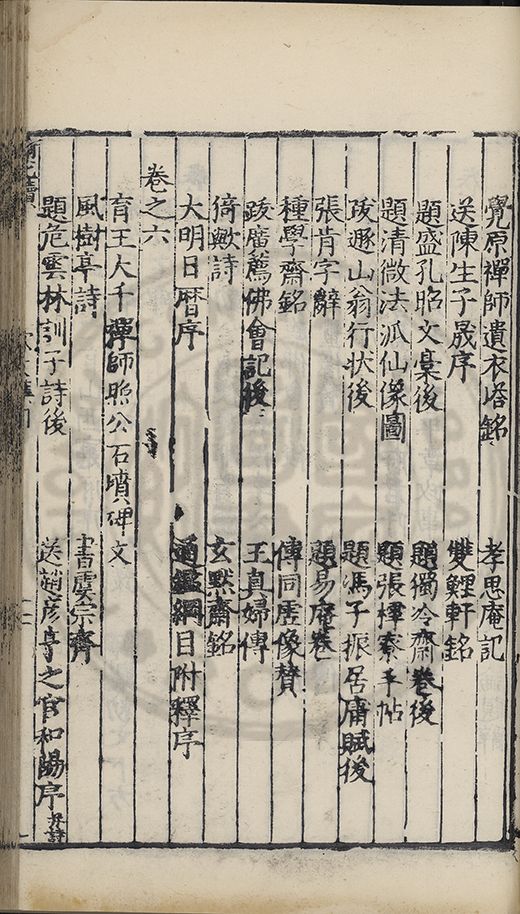 覺原禪師遺衣塔銘 孝思庵記
送陳生子晟序 雙鯉軒銘
題盛孔昭文稾後 題獨冷齋卷後
題清微法派仙像圖 題張樗寮手帖
跋遯山翁行状後 題馮子振居庸賦後
張肯字辭 題易庵卷
種學齋銘 傅同虚像賛
跋廣薦佛會記後 王真婦傳
猗歟詩 玄默齋銘
大明日曆序 通鑑綱目附釋序
卷之六
育王大千禪師照公石墳碑文
風樹亭詩 書虞宗齊
題危雲林訓子詩後 送趙彦亨之官和陽序 并詩